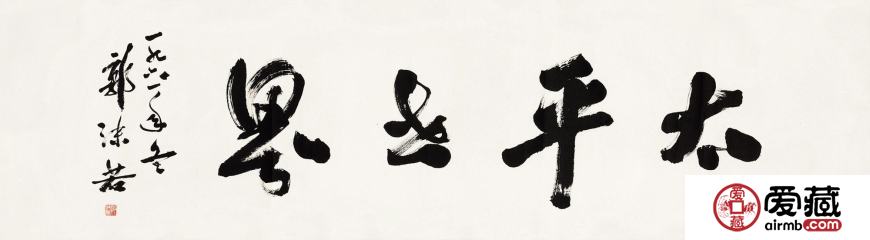 太平世界
一九六一年冬
郭沫若
爱藏
airmb.com